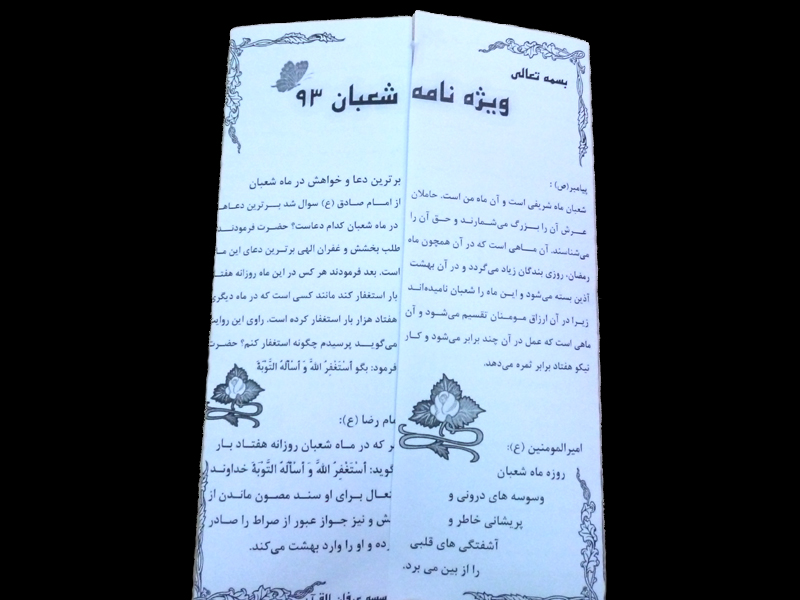 بسمه تعالی
ویژه نامه شعبان ۹۳
پیامبر(ص) :
شعبان ماه شریفی است و آن ماه من است. حاملان
عـــرش آن را بـــزرگ می‌شـمارنـد و حـق آن را
می‌شناسند. آن مـــاهی است که در آن همچون ماه
رمضان، روزی بندگان زیاد می‌گردد و در آن بهشت
آذین بسته می‌شود و ایـن ماه را شعبان نامیده‌انـد
زیـرا در آن ارزاق مـومـنـان تقسیم می‌شـود و آن
ماهی است که عمل در آن چند برابر می‌شود و کـار
نیکو هفتاد برابر ثمره می‌دهد.
امیرالمومنین (ع):
روزه ماه شعبان
وسوسه های درونی و
پریشانی خاطر و
آشفتگی های قلبی
را از بین می برد.
برترین دعا و خواهش در ماه شعبان
از امـــام صـادق (ع) سوال شد بـــرترین دعـاهـا
در ماه شعبان کدام دعاست؟ حضرت فرمودنـــد
طلب بخشش و غفران الهی برتـرین دعای این
است. بعد فرمودند هر کس در این ماه روزانه
بار استغفار کند مانند کسی است که در ماه دیگری
هفتاد هزار بار استغفار کرده است. راوی این
می‌گویـــد پرسیدم چگونه استغفار کنم؟
فرمود: بگو أَسْتَغْفِرُ اللهَّ وَ أَسْأَلُهُ التَّوْبَةَ
رضا (ع):
که در مـاه شعبان روزانه هفتــاد بـار
أَسْتَغْفِرُ اللهَّ وَ أَسْأَلُهُ التَّوْبَةَ خداونـد
بـرای او سنـد مصـون مانـدن از
و نیز جـواز عبـور از صراط را صـادر
و او را وارد بهشت می‌کند.